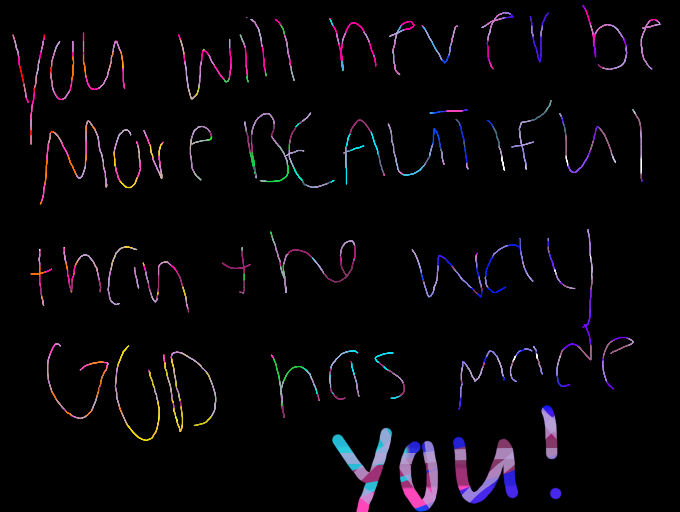 you will never be
More BEAUTIFUl
than the way
GOD has made
you!